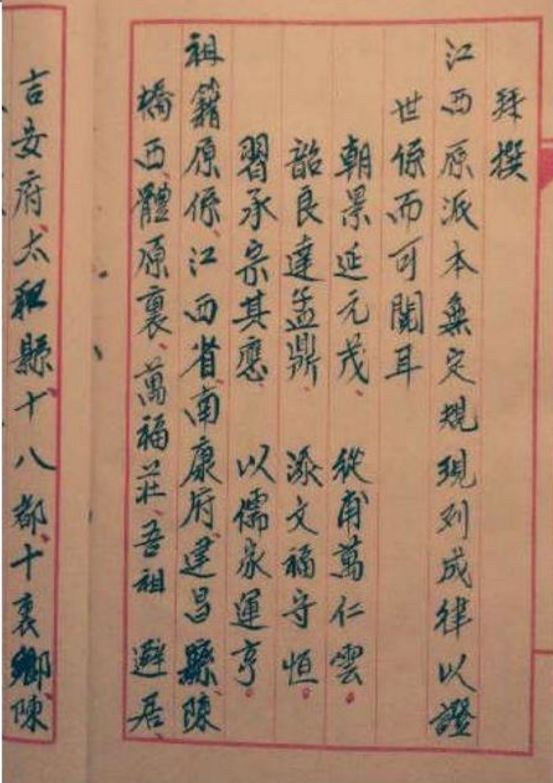 拜撰
江西原派本無定規現列成律以證
世係而可闡耳
朝景延元茂、 從甫萬仁雲。
韶良達孟鼎、 添文福守恒。
習承宗其應、 以儒永運亨。
祖籍原係、江西省、南康府、建昌縣、陳
橋西、體原裏、萬福莊、吾祖 避居、
吉安府、太和縣、十八都、十裏鄉、陳